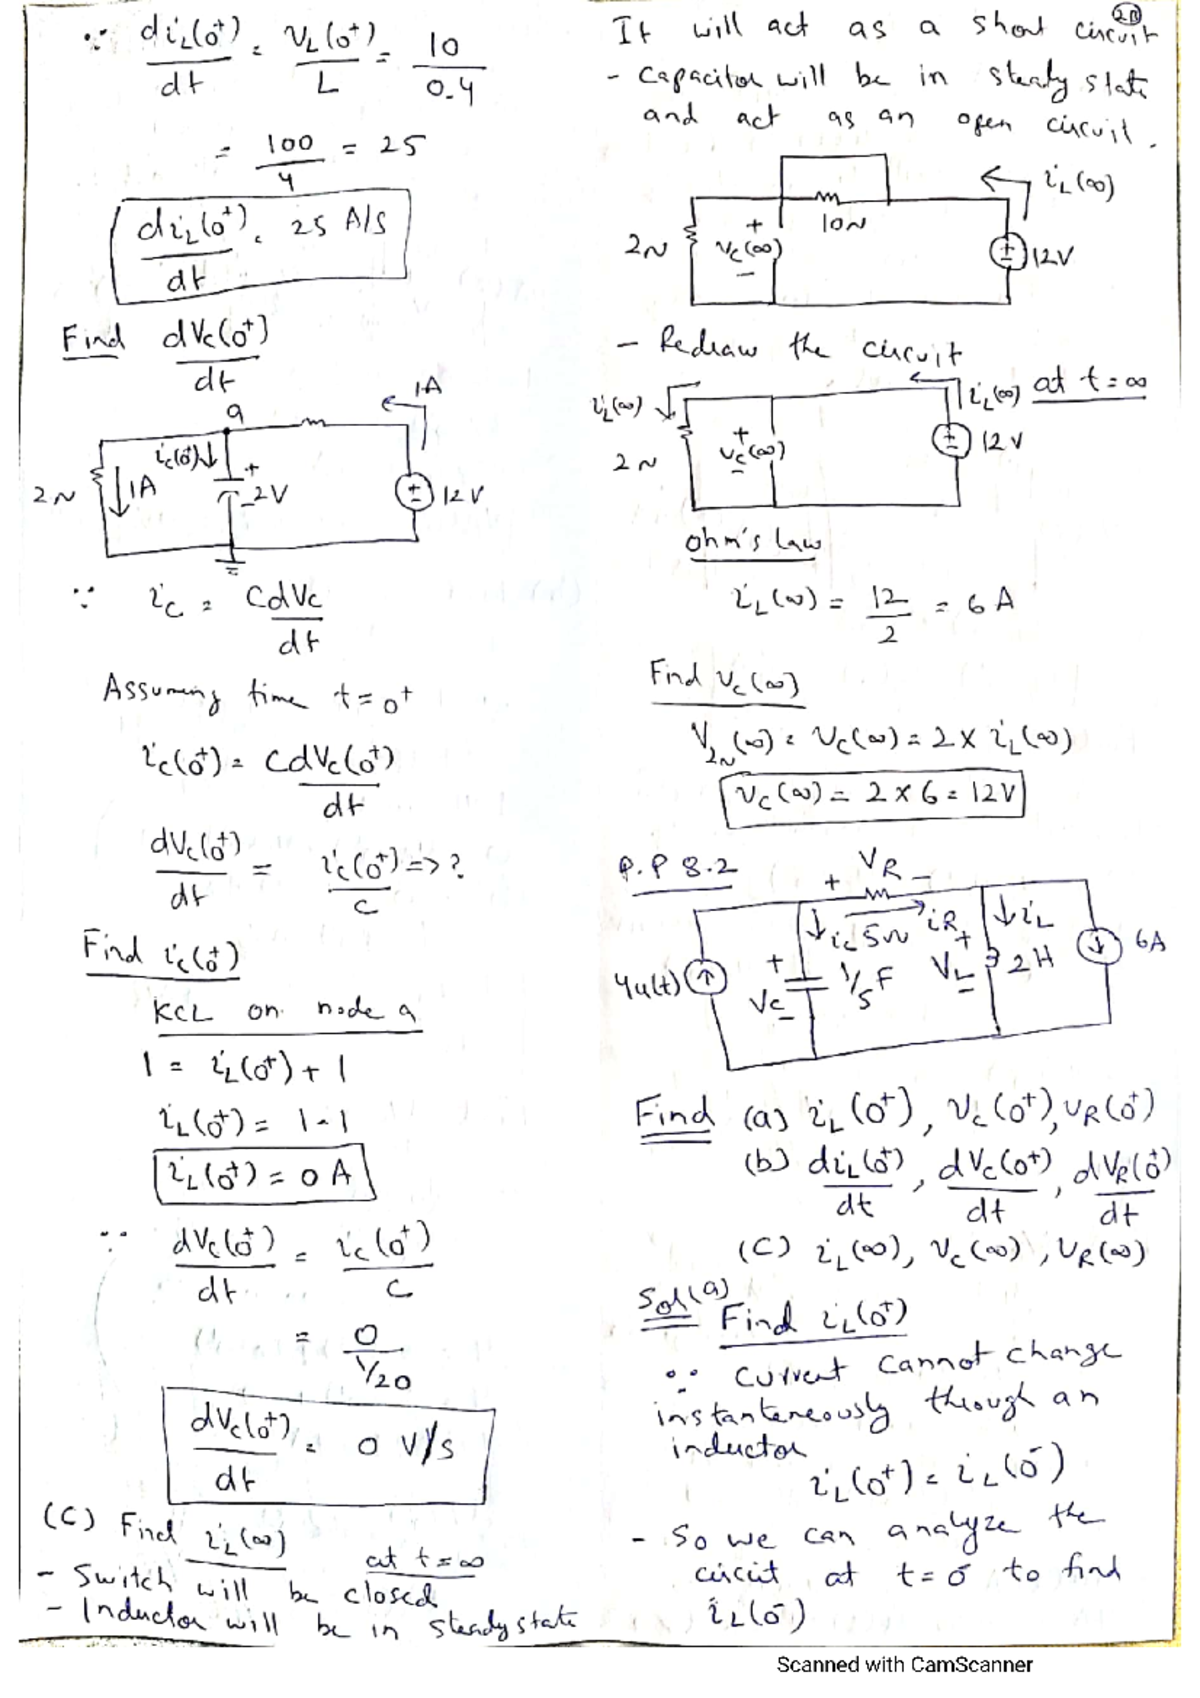 ∵ diL(0⁺)/dt = VL(0⁺)/L = 10/0.4
= 100/4 = 25
diL(0⁺)/dt = 25 A/s
Find dVc(0⁺)/dt
1A
a
ic(0⁺)↓
2Ω
↓1A
+
2V
-
12V
∵ ic = CdVc/dt
Assuming time t=0⁺
ic(0⁺) = CdVc(0⁺)/dt
dVc(0⁺)/dt = ic(0⁺)/C => ?
Find ic(0⁺)
KCL on node a
1 = iL(0⁺) + 1
iL(0⁺) = 1-1
iL(0⁺) = 0 A
∵ dVc(0⁺)/dt = ic(0⁺)/C
= 0/1/20
dVc(0⁺)/dt = 0 V/s
(C) Find iL(∞)
at t=∞
- Switch will be closed
- Inductor will be in steady state
2B
It will act as a short circuit
- Capacitor will be in steady state
and act as an open circuit.
iL(∞)
10Ω
2Ω
+
Vc(∞)
-
12V
- Redraw the circuit
at t=∞
iL(∞)
iL(∞)
2Ω
+
Vc(∞)
-
12V
ohm's law
iL(∞) = 12/2 = 6 A
Find Vc(∞)
V2Ω(∞) = Vc(∞) = 2 x iL(∞)
Vc(∞) = 2 x 6 = 12V
P.P 8.2
+ VR -
↓ic 5Ω iR
↓iL
4u(t)
+
Vc
-
1/5 F
+
VL
-
2H
6A
Find (a) iL(0⁺), Vc(0⁺), VR(0⁺)
(b) diL(0⁺)/dt, dVc(0⁺)/dt, dVR(0⁺)/dt
(C) iL(∞), Vc(∞), VR(∞)
Sol(a)
Find iL(0⁺)
∵ Current cannot change
instanteneously through an
inductor
iL(0⁺) = iL(0⁻)
- So we can analyze the
circuit at t=0⁻ to find
iL(0⁻)
Scanned with CamScanner